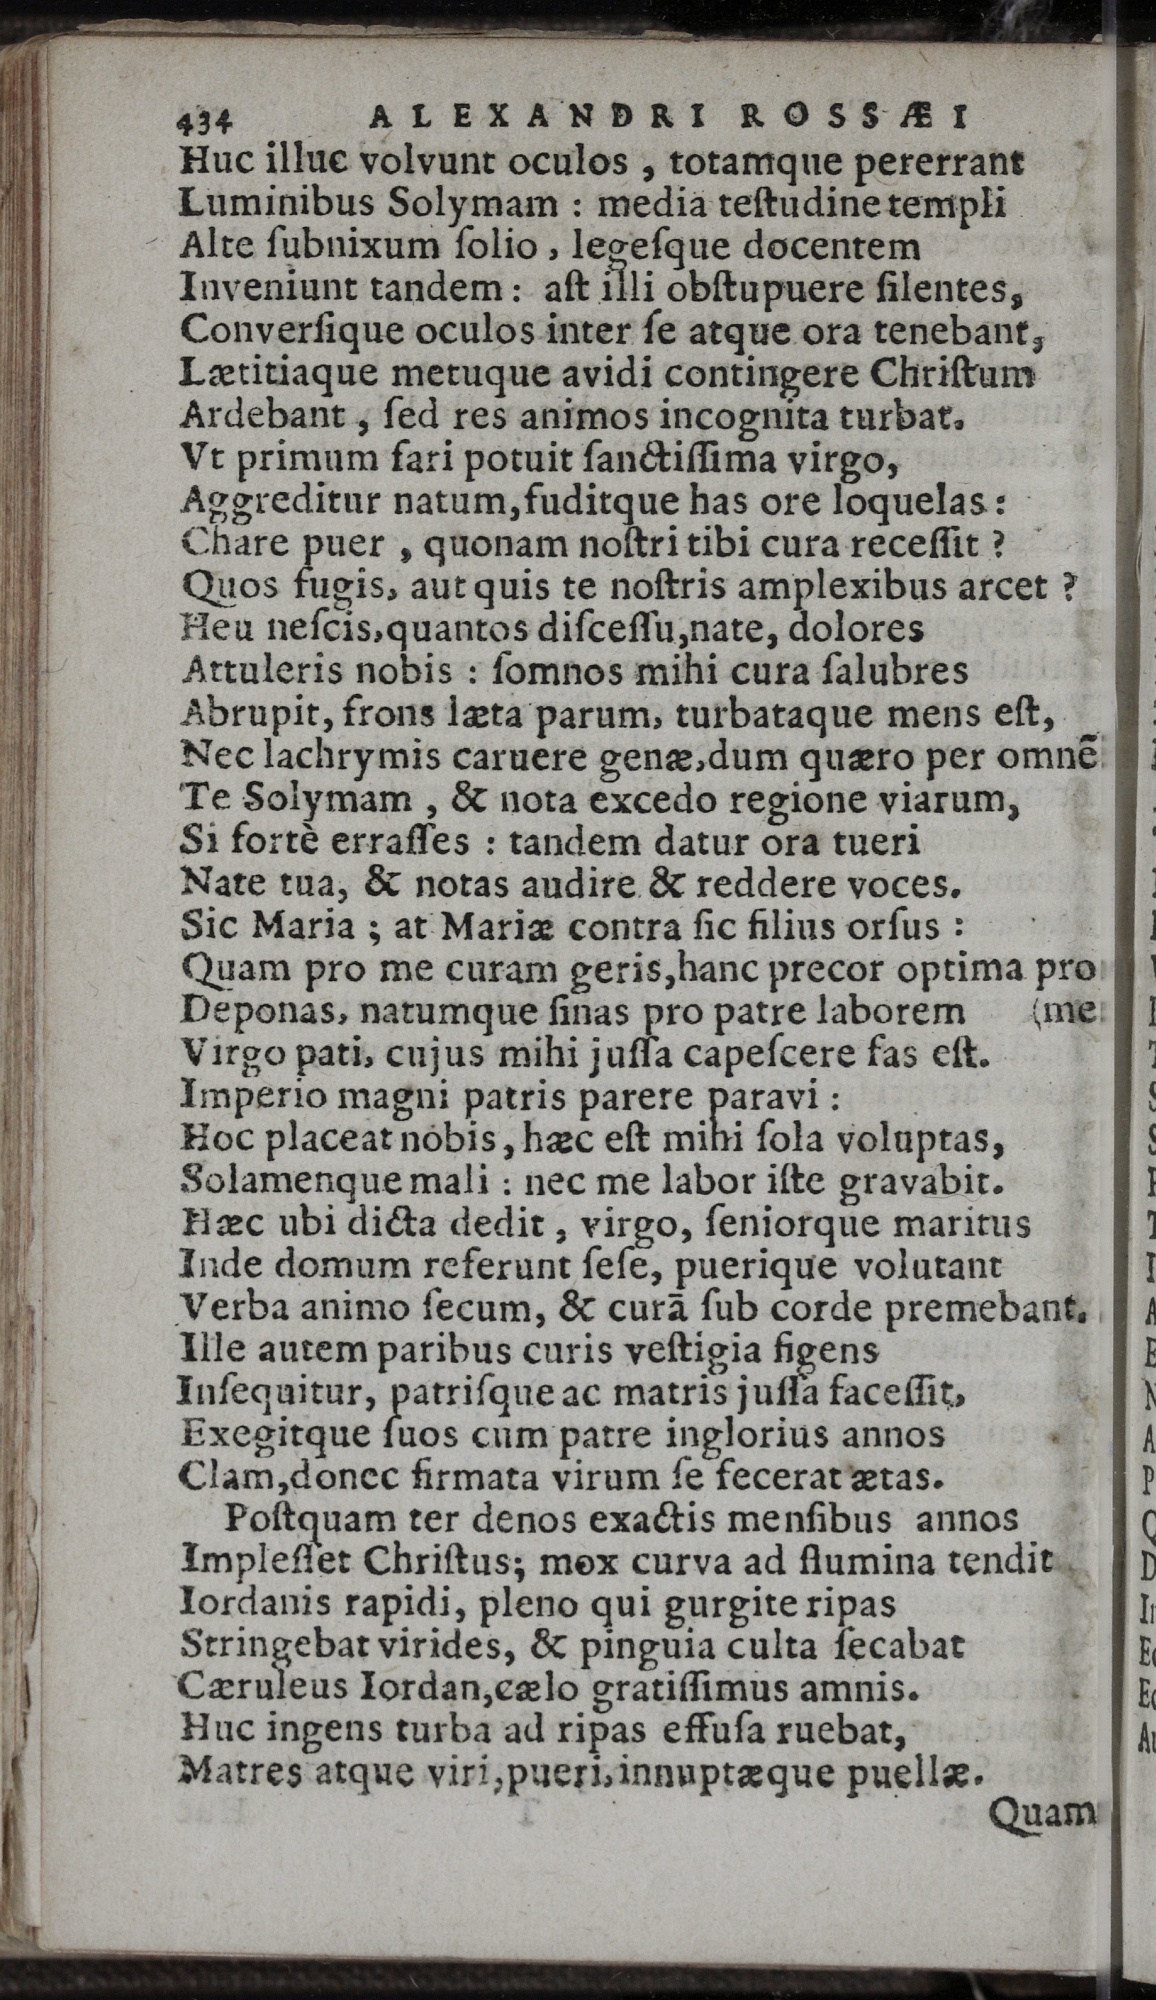 434 ALEXANDRI ROSSÆI
Huc illuc volvunt oculos , totamque pererrant
Luminibus Solymam : media teſtudine templi
Alte ſubnixum ſolio , legeſque docentem
Inveniunt tandem : aſt illi obſtupuere ſilentes,
Converſique oculos inter ſe atque ora tenebant,
Lætitiaque metuque avidi contingere Chriſtum
Ardebant , ſed res animos incognita turbat.
Vt primum fari potuit ſanctiſſima virgo,
Aggreditur natum, fuditque has ore loquelas :
Chare puer , quonam noſtri tibi cura receſſit ?
Quos fugis, aut quis te noſtris amplexibus arcet ?
Heu neſcis, quantos diſceſſu, nate, dolores
Attuleris nobis : ſomnos mihi cura ſalubres
Abrupit, frons læta parum, turbataque mens eſt,
Nec lachrymis caruere genæ, dum quæro per omnē
Te Solymam , & nota excedo regione viarum,
Si fortè erraſſes : tandem datur ora tueri
Nate tua, & notas audire & reddere voces.
Sic Maria ; at Mariæ contra ſic filius orſus :
Quam pro me curam geris, hanc precor optima pro
Deponas, natumque ſinas pro patre laborem (me
Virgo pati, cujus mihi juſſa capeſcere fas eſt.
Imperio magni patris parere paravi :
Hoc placeat nobis , hæc eſt mihi ſola voluptas,
Solamenque mali : nec me labor iſte gravabit.
Hæc ubi dicta dedit , virgo, ſeniorque maritus
Inde domum referunt ſeſe, puerique volutant
Verba animo ſecum, & curā ſub corde premebant.
Ille autem paribus curis veſtigia figens
Inſequitur, patriſque ac matris juſſa faceſſit,
Exegitque ſuos cum patre inglorius annos
Clam, donec firmata virum ſe fecerat ætas.
Poſtquam ter denos exactis menſibus annos
Impleſſet Chriſtus; mox curva ad flumina tendit
Iordanis rapidi, pleno qui gurgite ripas
Stringebat virides, & pinguia culta ſecabat
Cæruleus Iordan, cælo gratiſſimus amnis.
Huc ingens turba ad ripas effuſa ruebat,
Matres atque viri, pueri, innuptæque puellæ.
Quam